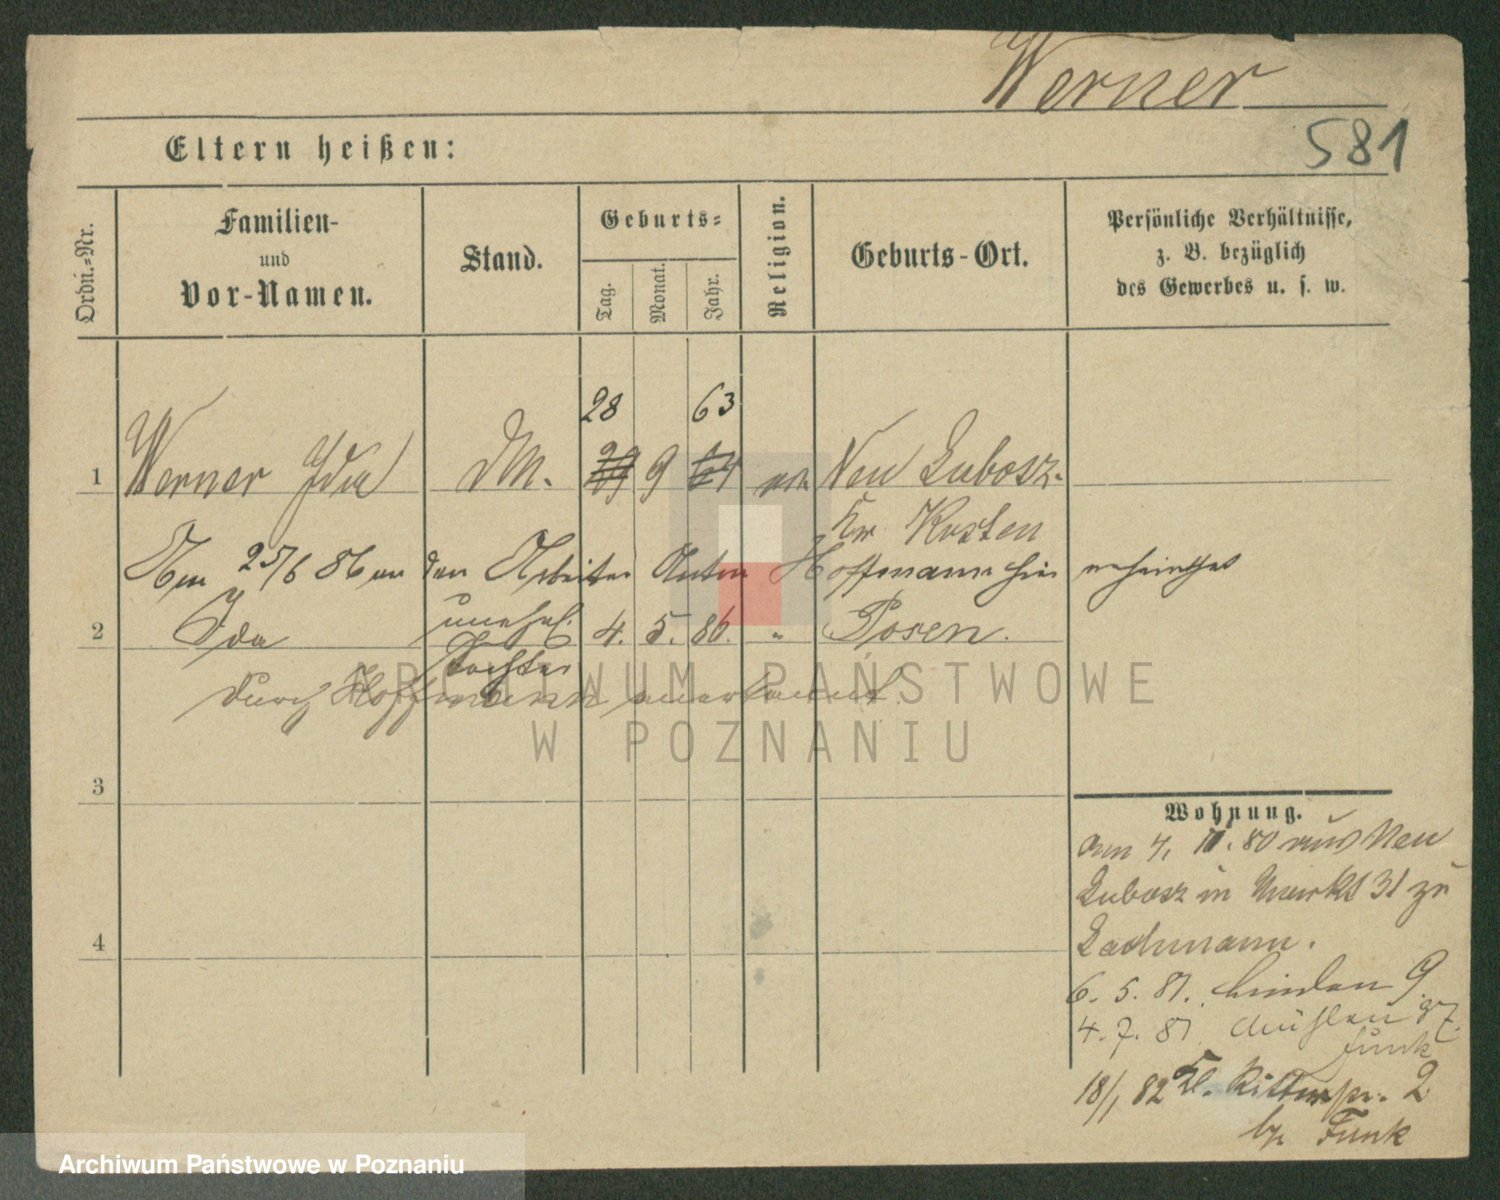 Werner
581
Eltern heißen:
Ordn.-Nr.
Familien-
und
Vor-Namen.
Stand.
Geburts-
Tag.
Monat.
Jahr.
Religion.
Geburts-Ort.
Persönliche Verhältnisse,
z. B. bezüglich
des Gewerbes u. s. w.
28 63
1 Werner Ida DM. 9 64 Neu Lubosz.
Kr Kosten
Am 25/6 86 an den Arbeiter Anton Hoffmann hier verheirathet
2 Ida unehel. 4. 5. 86. " Posen.
Tochter
durch Hoffmann anerkannt.
3
4
Wohnung.
am 4. 11. 80 aus Neu
Lubosz in Markt 31 zu
Lachmann.
6. 5. 81. Linden 9.
4. 7. 81 Mühlen 37.
Funk
18/1 82 Kl. Ritterstr. 2
b. Funk
ARCHIWUM PAŃSTWOWE
W POZNANIU
Archiwum Państwowe w Poznaniu